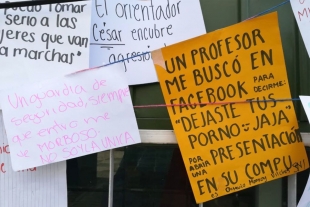 tomar
serio a las
jeres que van
a marchas"
El orientador
César encubre
agresión
Un guardia de
seguridad, siempre
que entro me ve
MORBOSO
NO SOY LA UNICA
UN PROFESOR
ME BUSCÓ EN
FACEBOOK PARA DECIRME:
"DEJASTE TUS
PORNO - JAJA"
POR ABRIR UNA PRESENTACIÓN
EN SU COMPU